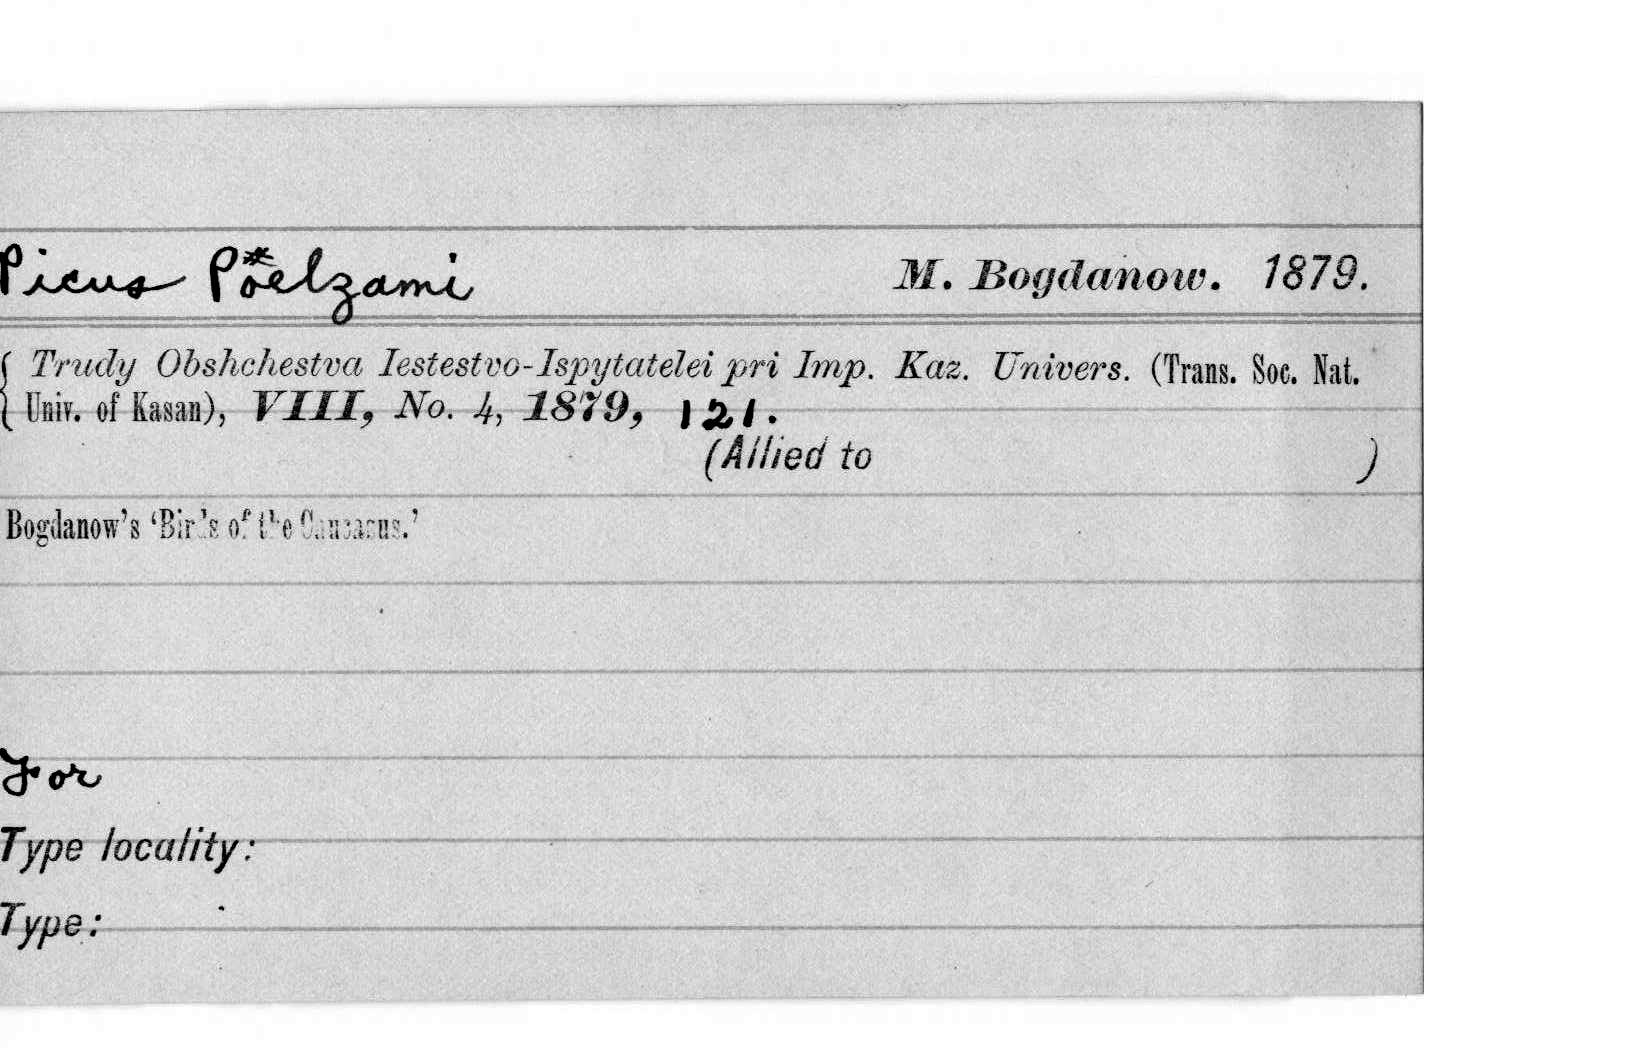 Picus Pöelzami M. Bogdanow. 1879.
Trudy Obshchestva Iestestvo-Ispytatelei pri Imp. Kaz. Univers. (Trans. Soc. Nat.
Univ. of Kasan), VIII, No. 4, 1879, 121.
(Allied to )
Bogdanow's 'Birds of the Caucasus.'
For
Type locality:
Type: